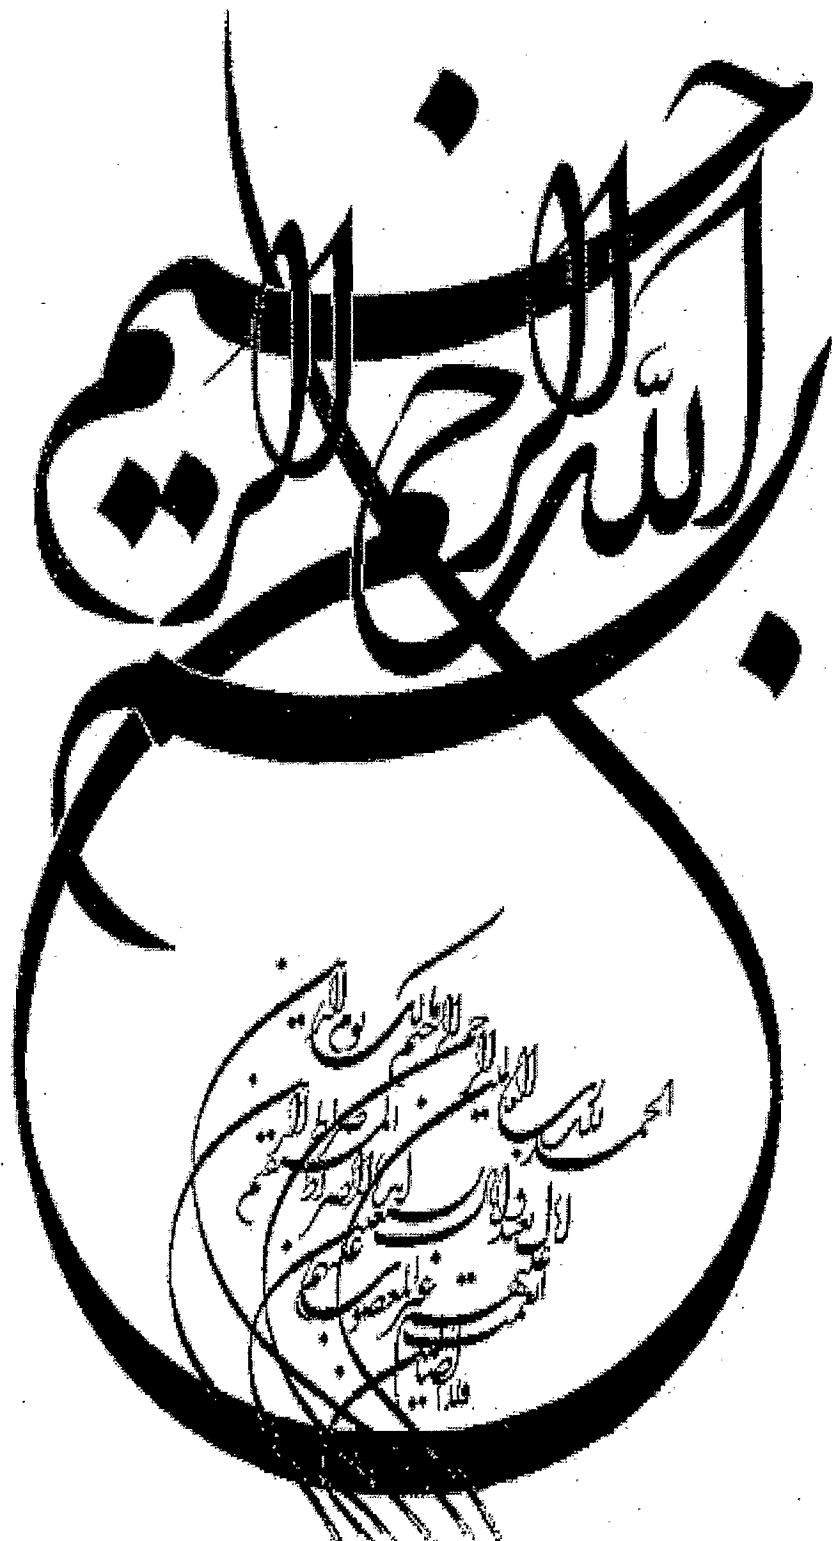 بسم
الله الرحمن الرحيم
الحمد لله رب العالمين
الرحمن الرحيم
مالك يوم الدين
اياك نعبد واياك نستعين
اهدنا الصراط المستقيم
صراط الذين
انعمت عليهم
غير المغضوب عليهم
ولا الضالين